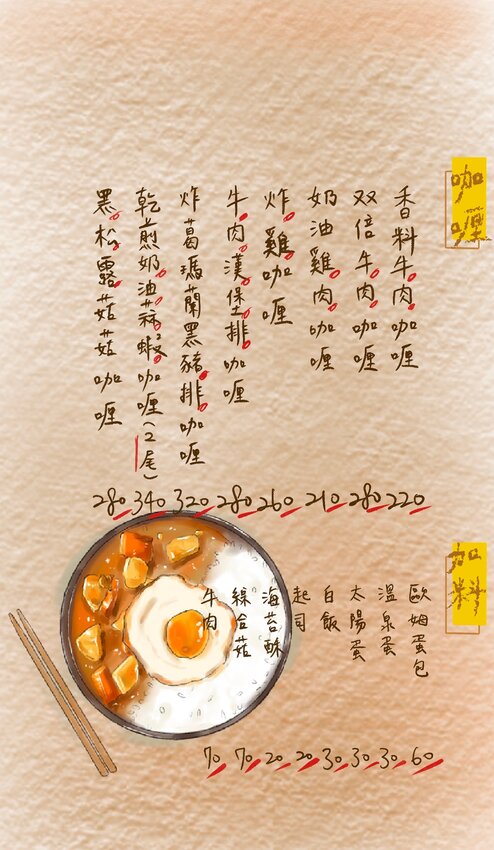 咖喱
香料牛肉咖喱 220
双倍牛肉咖喱 280
奶油雞肉咖喱 210
炸雞咖喱 260
牛肉漢堡排咖喱 280
炸葛瑪蘭黑豬排咖喱 320
乾煎奶油蒜蝦咖喱(2尾) 340
黑松露菇菇咖喱 280
加料
歐姆蛋包 60
溫泉蛋 30
太陽蛋 30
白飯 30
起司 20
海苔酥 20
綜合菇 70
牛肉 70